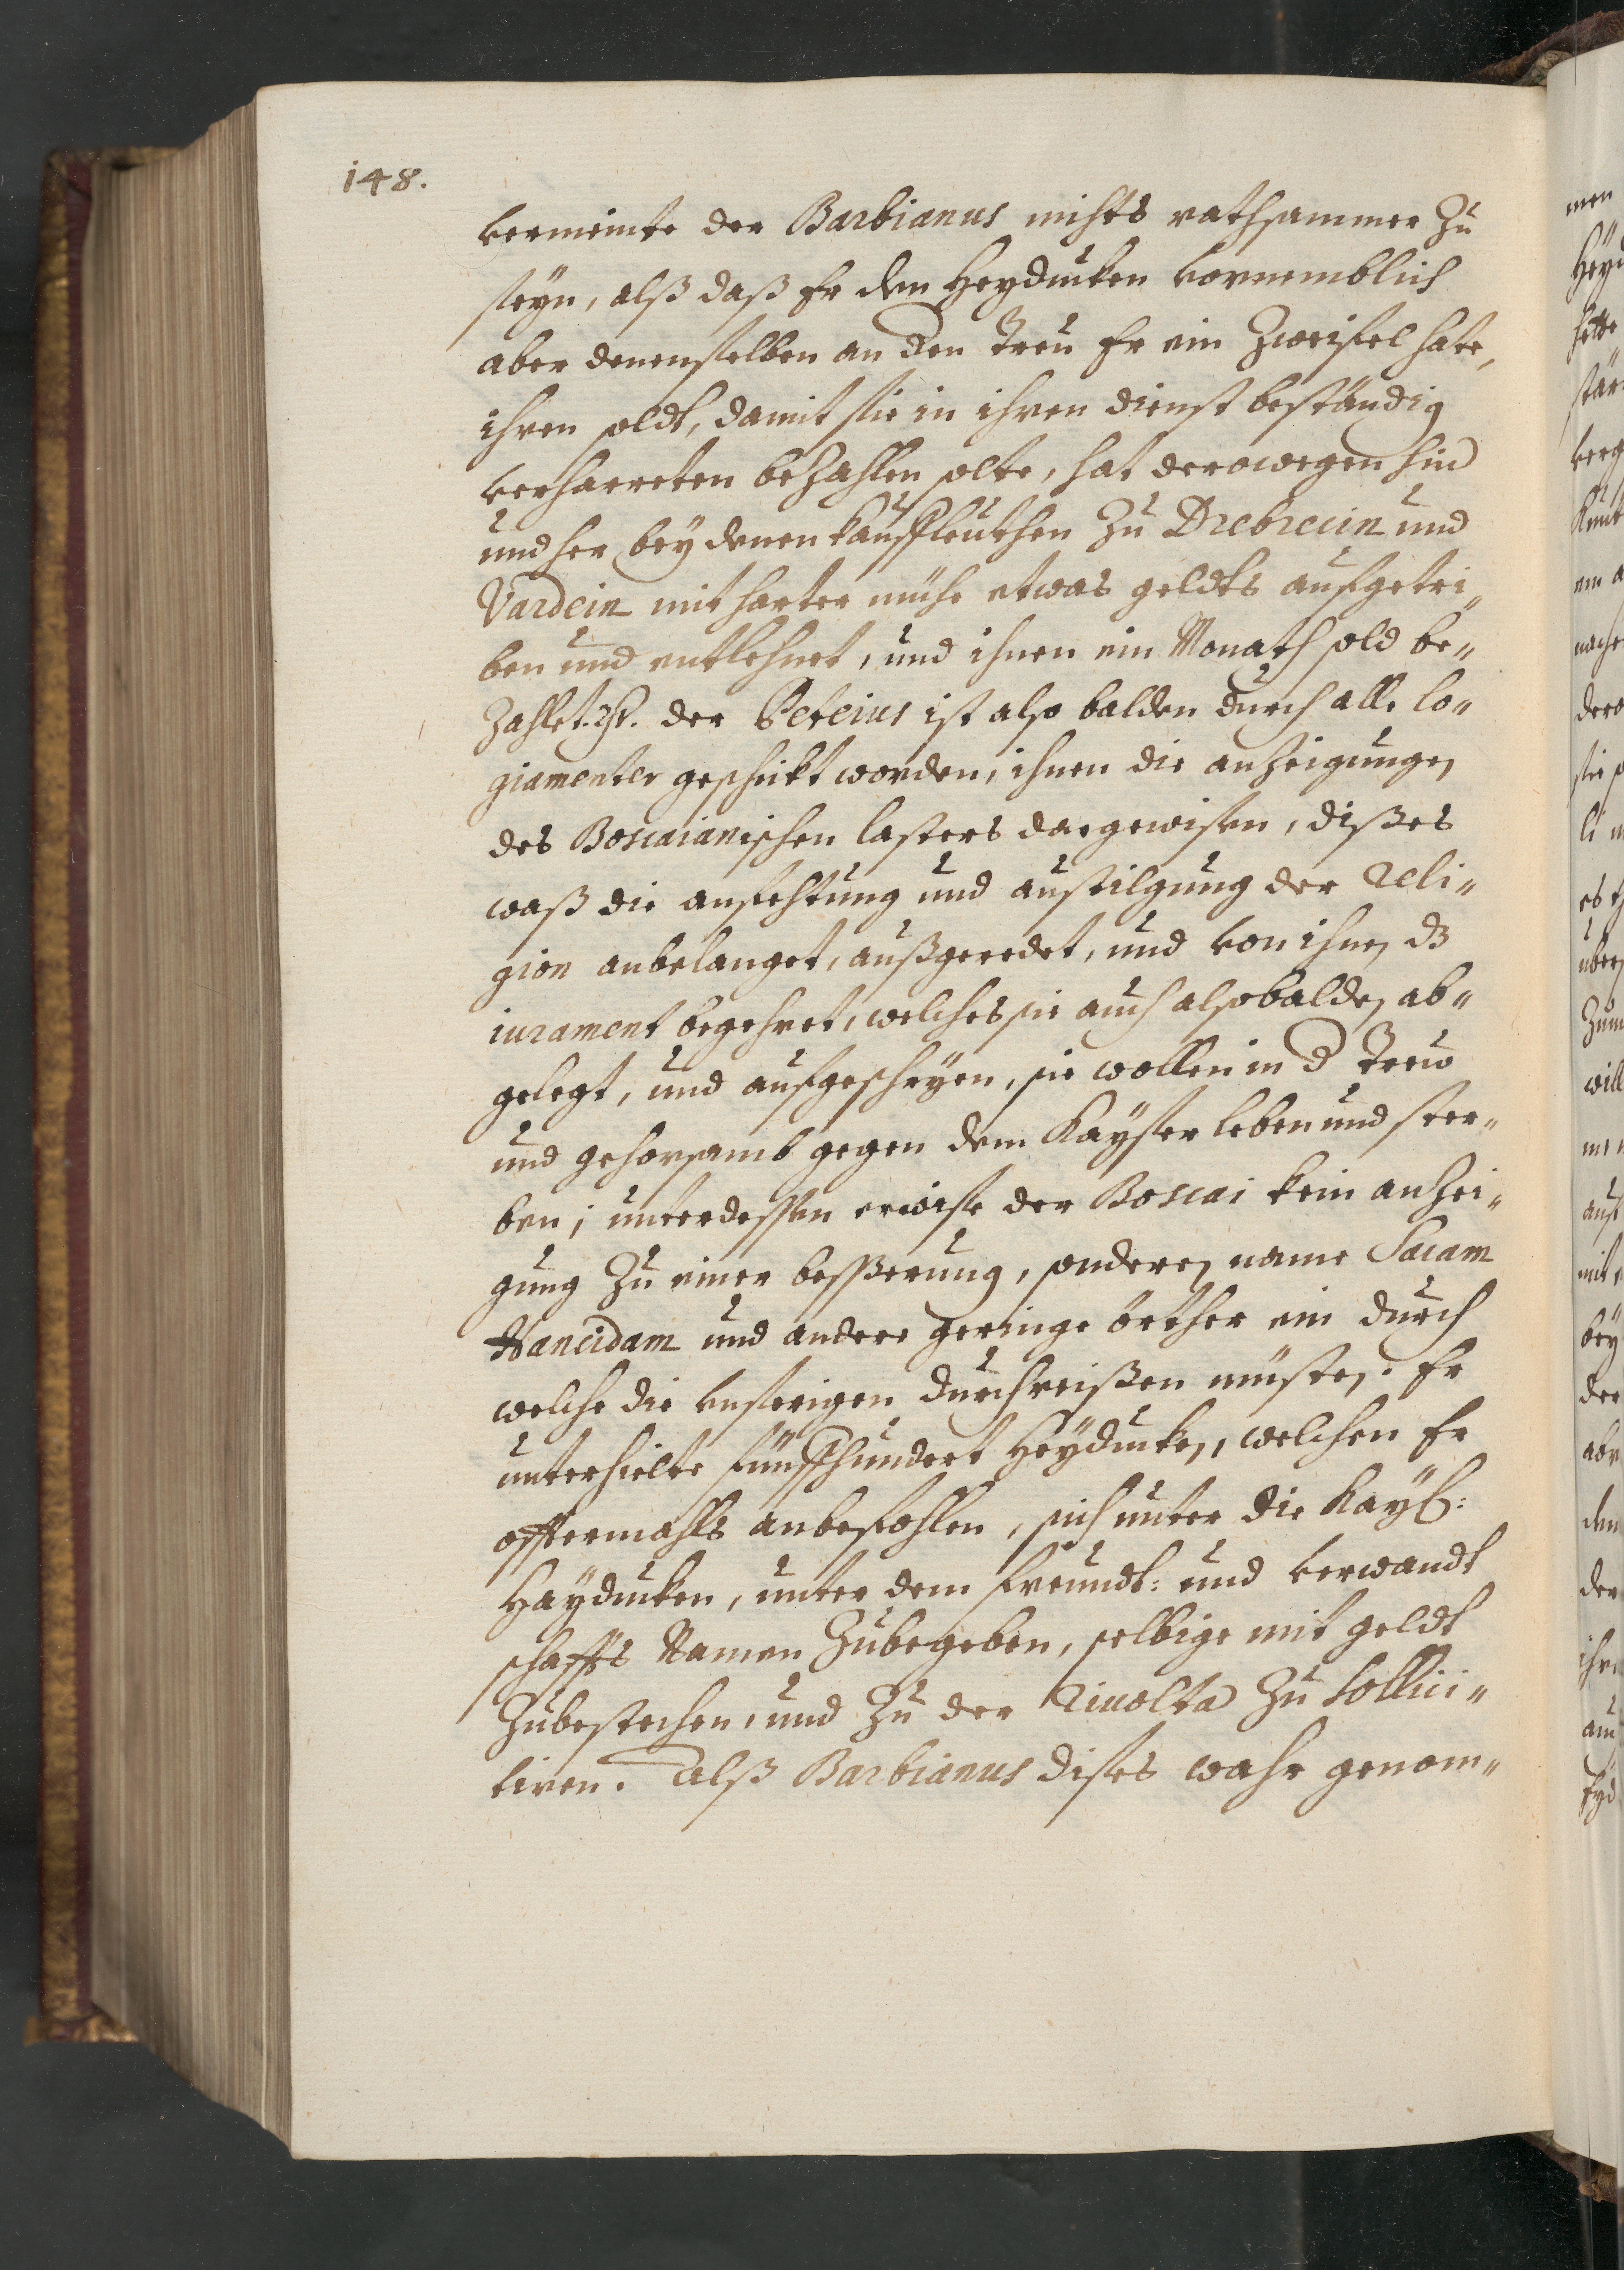 148.
vermeinte der Barbianus nichts rathsammer zu
seyn, alß daß Er den Heyducken vornemblich
aber denenselben an den Treu Er ein Zweifel hate,
ihren soldt, damit sie in ihren dienst beständig
verharreten bezahlen solte, hat derowegen hin
und her bey denen kauffleuthen zu Drebrecin und
Vardein mit harter mühe etwas geldts aufgetri„
ben und entlehnet, und ihnen ein Monath sold be„
zahlet. der Peteius ist also balden durch alle lo„
giamenter geschickt worden, ihnen die anzeigungen
des Boscaianischen lasters dargewisen, dißes
waß die anfechtung und austilgung der Reli„
gion anbelanget, außgeredet, und von ihnen dz
iurament begehret, welches sie auch alsobalden ab„
gelegt, und aufgeschryen, sie wollen in d Trew
und gehorsamb gegen dem Kayser leben und ster„
ben; unterdessen erwise der Boscai kein anzei„
gung zu einer besserung, sonderen name Sacam
Nancidam und andere geringe örther ein durch
welche die unserigen durchreißen müsten. Er
unterhielte fünffhundert Heyducken, welchen Er
offtermahls anbefohlen, sich unter die Kayß:
Hayducken, unter dem freundt: und verwandt
schaffts Namen zubegeben, selbige mit geldt
zubestechen, und zu der Rivolta zu sollici„
tiren. Alß Barbianus dises wahr genom„